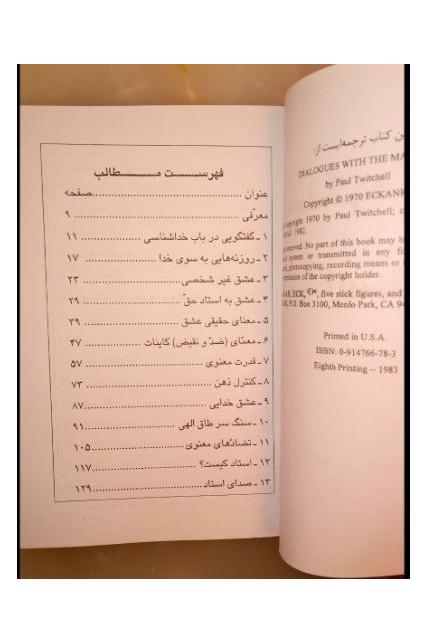 فهرست مطالب
عنوان ........................ صفحه
معرّفی ........................ ۹
۱ ـ گفتگویی در باب خداشناسی ................ ۱۱
۲ ـ روزنه‌هایی به سوی خدا ................ ۱۷
۳ ـ عشق غیر شخصی ................ ۲۳
۴ ـ عشق به استاد حقّ ................ ۲۹
۵ ـ معنای حقیقی عشق ................ ۳۹
۶ ـ معمای (ضدّ و نقیض) کاینات ................ ۴۷
۷ ـ قدرت معنوی ................ ۵۷
۸ ـ کنترل ذهن ................ ۷۳
۹ ـ عشق خدایی ................ ۸۷
۱۰ ـ سنگ سر طاق الهی ................ ۹۱
۱۱ ـ تضادّهای معنوی ................ ۱۰۵
۱۲ ـ استاد کیست؟ ................ ۱۱۷
۱۳ ـ صدای استاد ................ ۱۲۹
ین کتاب ترجمه‌ایست از:
DIALOGUES WITH THE MA
by Paul Twitchell
Copyright © 1970 ECKANK
copyright 1970 by Paul Twitchell; c
1982.
reserved. No part of this book may b
system or transmitted in any fo
photocopying, recording means or
of the copyright holder.
ECK, five stick figures, and
P.O. Box 3100, Menlo Park, CA 94
Printed in U.S.A.
ISBN: 0-914766-78-3
Eighth Printing -- 1983